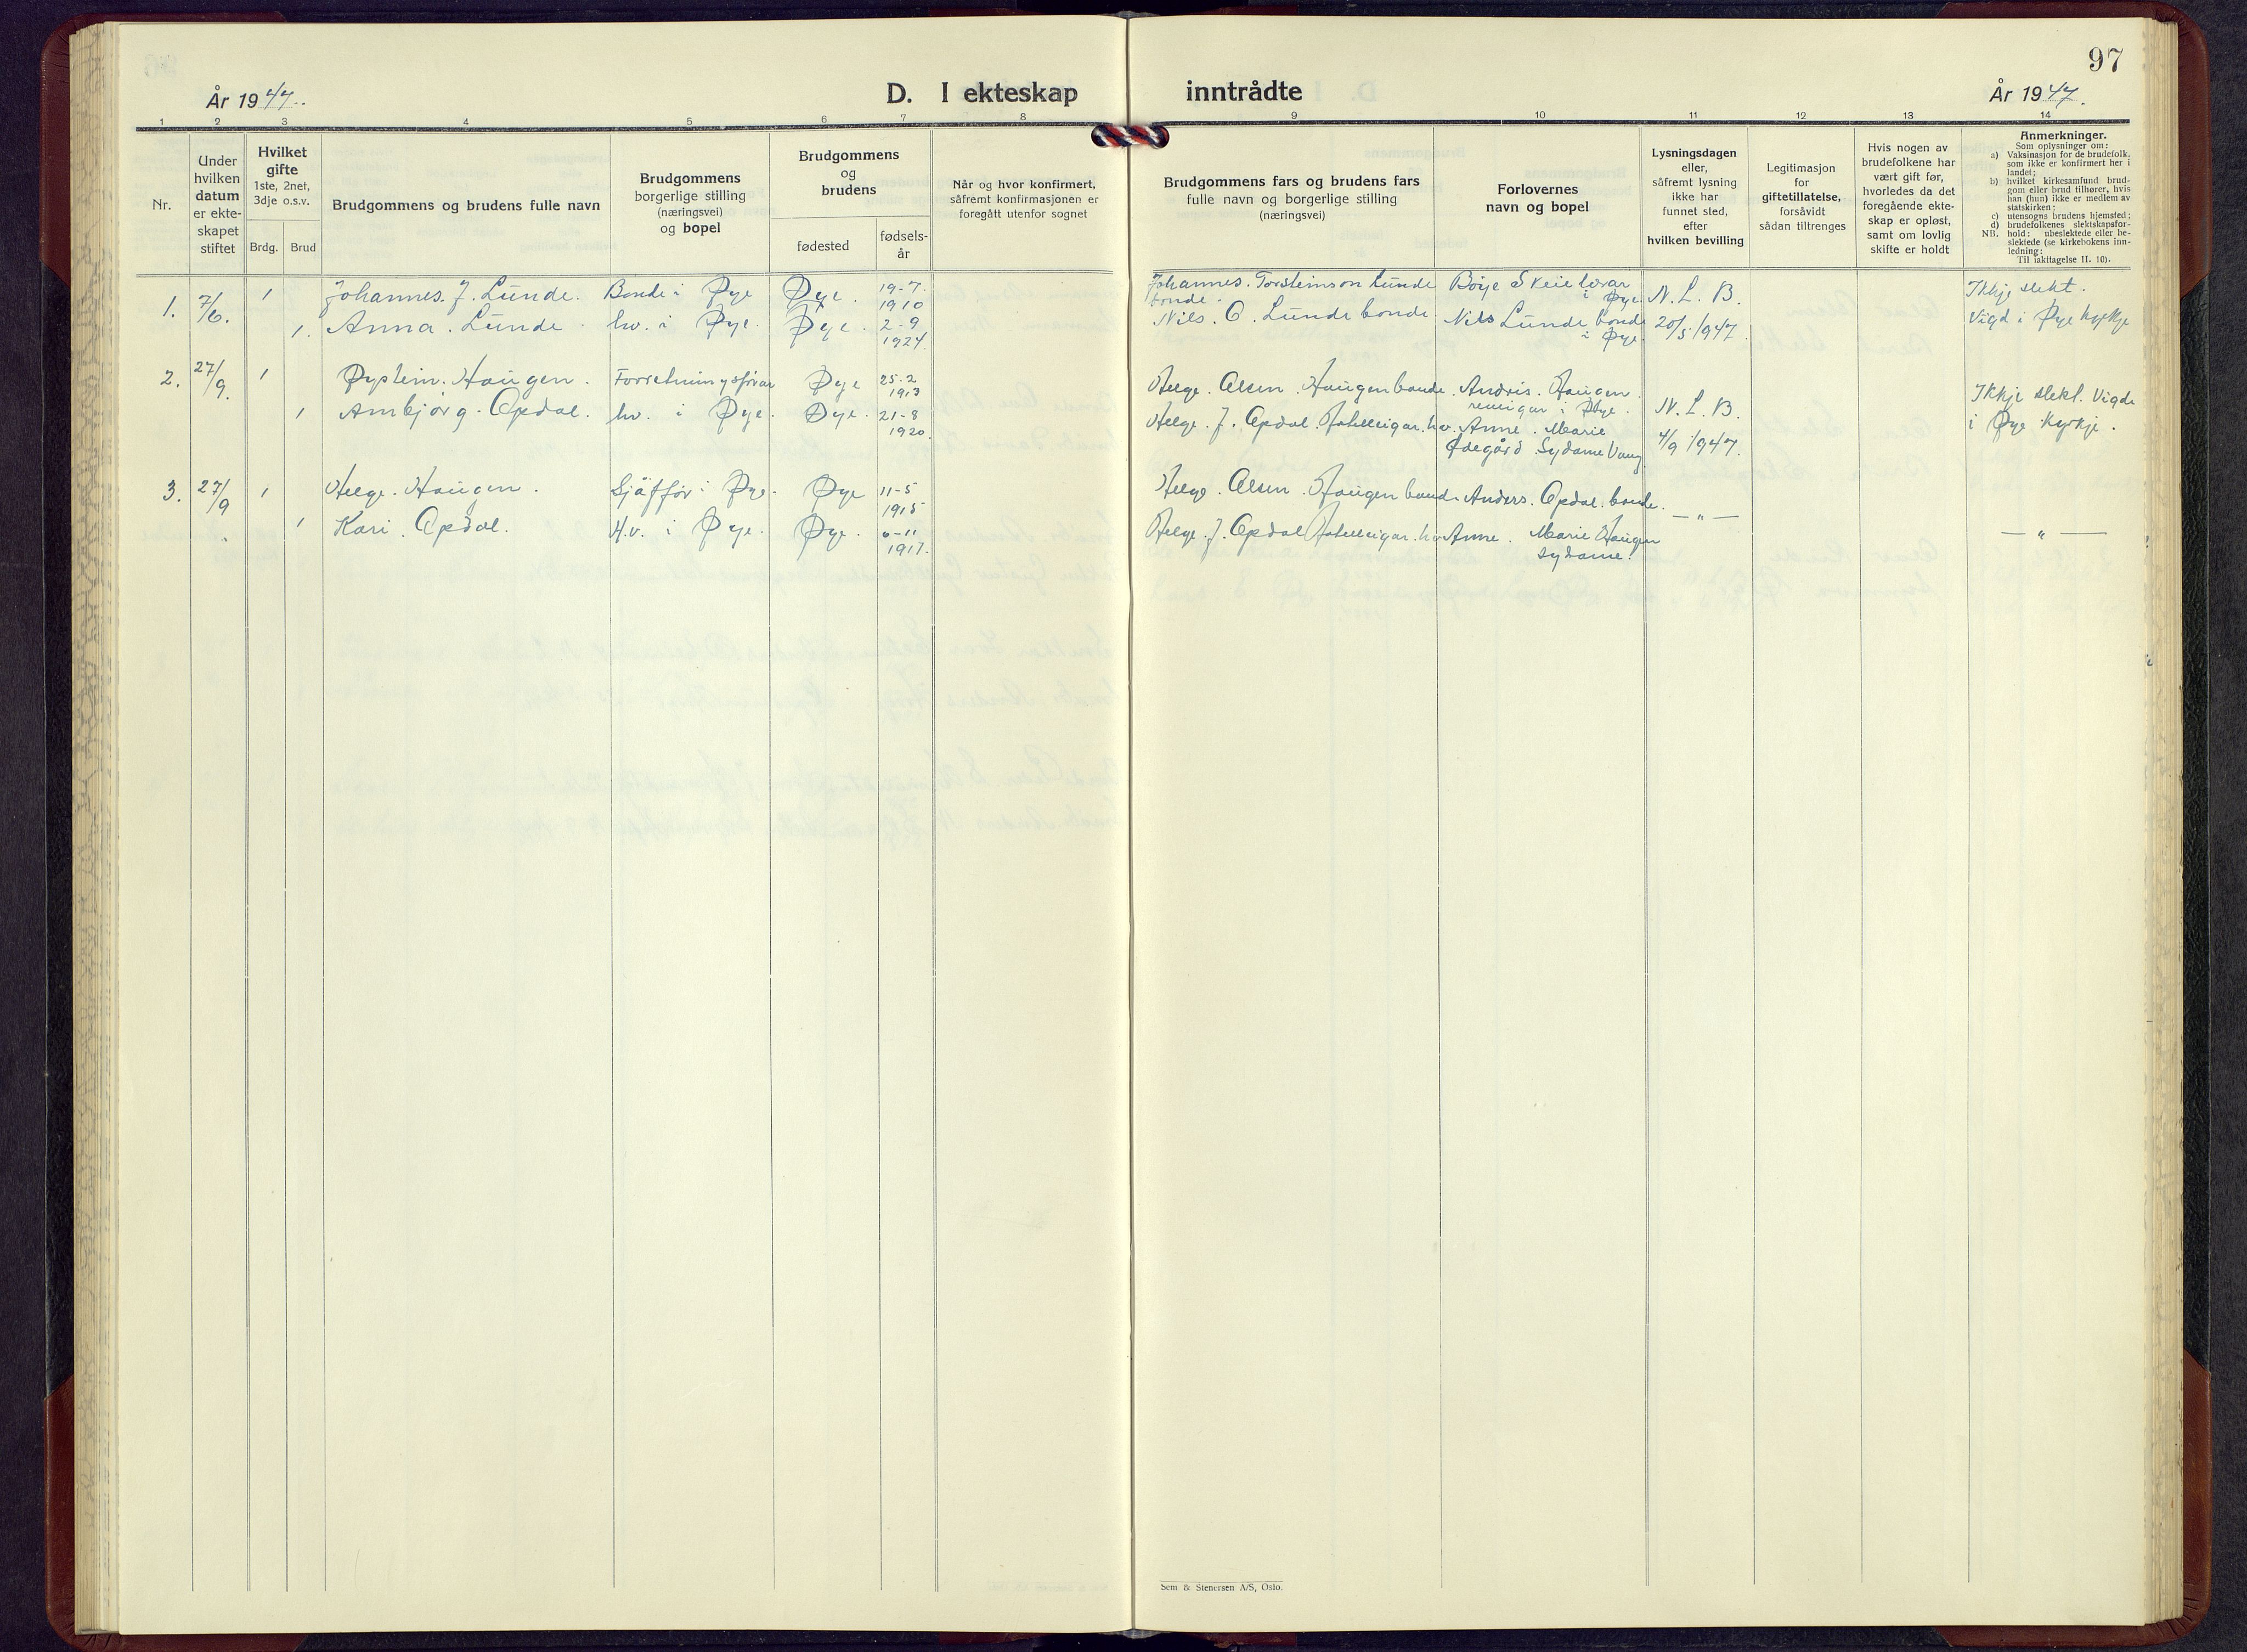 97
År 1947.
D. I ekteskap inntrådte
År 1947.
1 2 3 4 5 6 7 8 9 10 11 12 13 14
Nr.
Under
hvilken
datum
er ekte-
skapet
stiftet
Hvilket
gifte
1ste, 2net,
3dje o.s.v.
Brdg. Brud
Brudgommens og brudens fulle navn
Brudgommens
borgerlige stilling
(næringsvei)
og bopel
Brudgommens
og
brudens
fødested
fødsels-
år
Når og hvor konfirmert,
såfremt konfirmasjonen er
foregått utenfor sognet
Brudgommens fars og brudens fars
fulle navn og borgerlige stilling
(næringsvei)
Forlovernes
navn og bopel
Lysningsdagen
eller,
såfremt lysning
ikke har
funnet sted,
efter
hvilken bevilling
Legitimasjon
for
giftetillatelse,
forsåvidt
sådan tiltrenges
Hvis nogen av
brudefolkene har
vært gift før,
hvorledes da det
foregående ekte-
skap er opløst,
samt om lovlig
skifte er holdt
Anmerkninger.
Som oplysninger om:
a) Vaksinasjon for de brudefolk,
som ikke er konfirmert her i
landet;
b) hvilket kirkesamfund brud-
gom eller brud tilhører, hvis
han (hun) ikke er medlem av
statskirken;
c) utensogns brudens hjemsted;
d) brudefolkenes slektskapsfor-
hold:
NB. ubeslektede eller be-
slektede (se kirkebokens inn-
ledning:
Til iakttagelse II. 10).
1. 7/6. 1 Johannes. J. Lunde. Bonde i Øye Øye. 19-7. 1910 Johannes. Torsteinson Lunde bonde. Børje Skeie lærar i Øye. N. L. B. Ikkje slekt.
1. Anna. Lunde. hv. i Øye. Øye. 2-9 1924. Nils. O. Lunde bonde. Nils Lunde bonde i Øye. 20/5 1947. Vigd i Øye kyrkje
2. 27/9. 1 Øystein. Haugen. Øye 25-2 1913 Helge. Olsen. Haugen bonde. Andris. Haugen. i Øye. N. L. B. Ikkje slekt. Vigde
1 Ambjørg. Opdal. hv. i Øye. Øye. 21-8 1920. Helge. J. Opdal. Hotelleigar. Anne. Marie Ødegård Sydame Vang. 4/9 1947. i Øye kyrkje.
3. 27/9 1 Helge. Haugen. Sjåffør i Øye. Øye 11-5 1915 Helge. Olsen. Haugen bonde Anders. Opdal. bonde. — " —
1 Kari. Opdal. H.v. i Øye. Øye. 6-11 1917. Helge. J. Opdal Hotelleigar. Anne. Marie Haugen sydame. — " —
Sem & Stenersen A/S, Oslo.